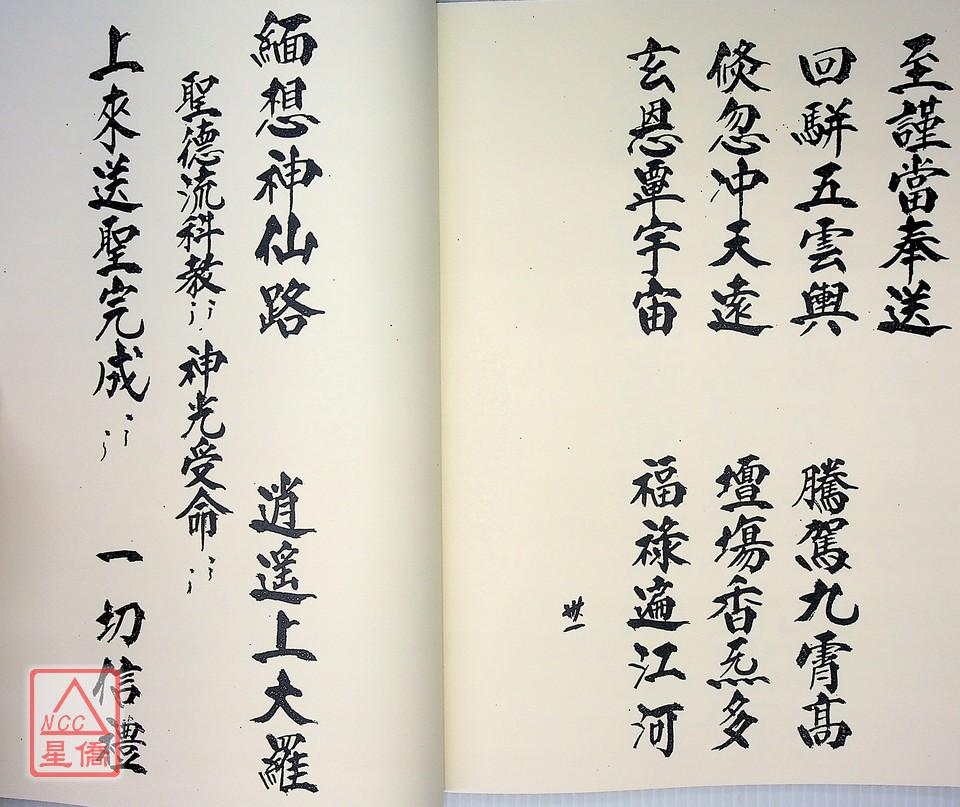 至謹當奉送
回駢五雲輿　騰駕九霄高
倐忽冲天遠　壇塲香炁多
玄恩覃宇宙　福祿遍江河
卅一
緬想神仙路　逍遙上大羅
聖德流科教　神光受命
上來送聖完成　一切信禮
NCC
星僑